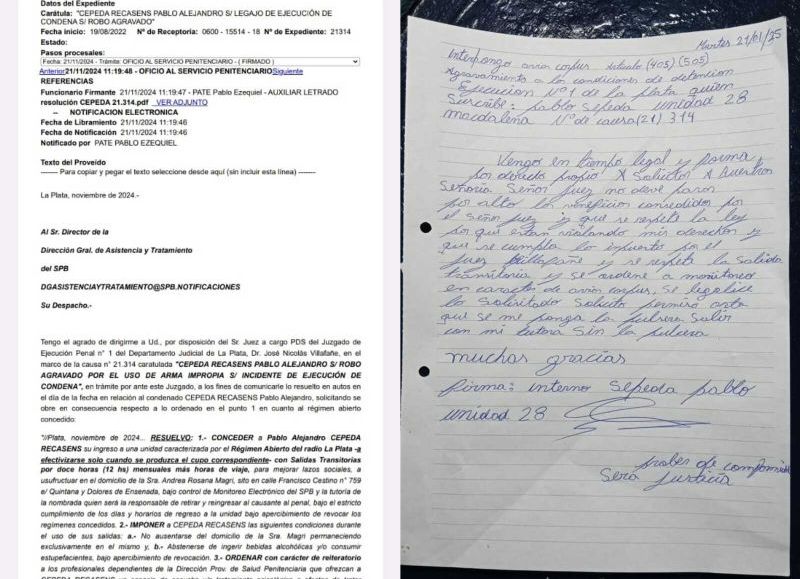 Datos del Expediente
Carátula: "CEPEDA RECASENS PABLO ALEJANDRO S/ LEGAJO DE EJECUCIÓN DE
CONDENA S/ ROBO AGRAVADO"
Fecha inicio: 19/08/2022 Nº de Receptoría: 0600 - 15514 - 18 Nº de Expediente: 21314
Estado:
Pasos procesales:
Fecha: 21/11/2024 - Trámite: OFICIO AL SERVICIO PENITENCIARIO - ( FIRMADO )
Anterior21/11/2024 11:19:48 - OFICIO AL SERVICIO PENITENCIARIOSiguiente
REFERENCIAS
Funcionario Firmante 21/11/2024 11:19:47 - PATE Pablo Ezequiel - AUXILIAR LETRADO
resolución CEPEDA 21.314.pdf VER ADJUNTO
-- NOTIFICACION ELECTRONICA
Fecha de Libramiento 21/11/2024 11:19:46
Fecha de Notificación 21/11/2024 11:19:46
Notificado por PATE PABLO EZEQUIEL
Texto del Proveído
------- Para copiar y pegar el texto seleccione desde aquí (sin incluir esta línea) -------
La Plata, noviembre de 2024.-
Al Sr. Director de la
Dirección Gral. de Asistencia y Tratamiento
del SPB
DGASISTENCIAYTRATAMIENTO@SPB.NOTIFICACIONES
Su Despacho.-
Tengo el agrado de dirigirme a Ud., por disposición del Sr. Juez a cargo PDS del Juzgado de
Ejecución Penal n° 1 del Departamento Judicial de La Plata, Dr. José Nicolás Villafañe, en el
marco de la causa n° 21.314 caratulada "CEPEDA RECASENS PABLO ALEJANDRO S/ ROBO
AGRAVADO POR EL USO DE ARMA IMPROPIA S/ INCIDENTE DE EJECUCIÓN DE
CONDENA", en trámite por ante este Juzgado, a los fines de comunicarle lo resuelto en autos en
el día de la fecha en relación al condenado CEPEDA RECASENS Pablo Alejandro, solicitando se
obre en consecuencia respecto a lo ordenado en el punto 1 en cuanto al régimen abierto
concedido:
"//Plata, noviembre de 2024... RESUELVO: 1.- CONCEDER a Pablo Alejandro CEPEDA
RECASENS su ingreso a una unidad caracterizada por el Régimen Abierto del radio La Plata -a
efectivizarse solo cuando se produzca el cupo correspondiente- con Salidas Transitorias
por doce horas (12 hs) mensuales más horas de viaje, para mejorar lazos sociales, a
usufructuar en el domicilio de la Sra. Andrea Rosana Magri, sito en calle Francisco Cestino n° 759
e/ Quintana y Dolores de Ensenada, bajo control de Monitoreo Electrónico del SPB y la tutoría de
la nombrada quien será la responsable de retirar y reingresar al causante al penal, bajo el estricto
cumplimiento de los días y horarios de regreso a la unidad bajo apercibimiento de revocar los
regímenes concedidos. 2.- IMPONER a CEPEDA RECASENS las siguientes condiciones durante
el uso de sus salidas: a.- No ausentarse del domicilio de la Sra. Magri permaneciendo
exclusivamente en el mismo y, b.- Abstenerse de ingerir bebidas alcohólicas y/o consumir
estupefacientes, bajo apercibimiento de revocación. 3.- ORDENAR con carácter de reiteratorio
a los profesionales dependientes de la Dirección Prov. de Salud Penitenciaria que ofrezcan a
Martes 21/01/25
Interpongo avias corpus Articulo (405) (505)
Agravamiento a las condiciones de detencion
Ejecucion Nº1 de la plata quien
Suscribe: pablo Sepeda unidad 28
magdalena Nº de causa (21) 314
Vengo en tiempo legal y forma
por derecho propio A Solicitar A Vuestra
Señoria. Señor juez no deve pasar
por alto los veneficios consedidos por
el señor juez y que se respete la ley
por que estan violando mis derechos y
que se cumpla lo inpuesto por el
juez Billafañe y se respete la salida
transitoria y se ordene a monitoreo
en caracter de avias corpus. Se legalice
lo solisitado Solicito permiso asta
que se me ponga la pulsera Salir
con mi tutora Sin la pulsera
muchas gracias
firma: interno Sepeda pablo
unidad 28
probes de compromiso
Sera Justicia